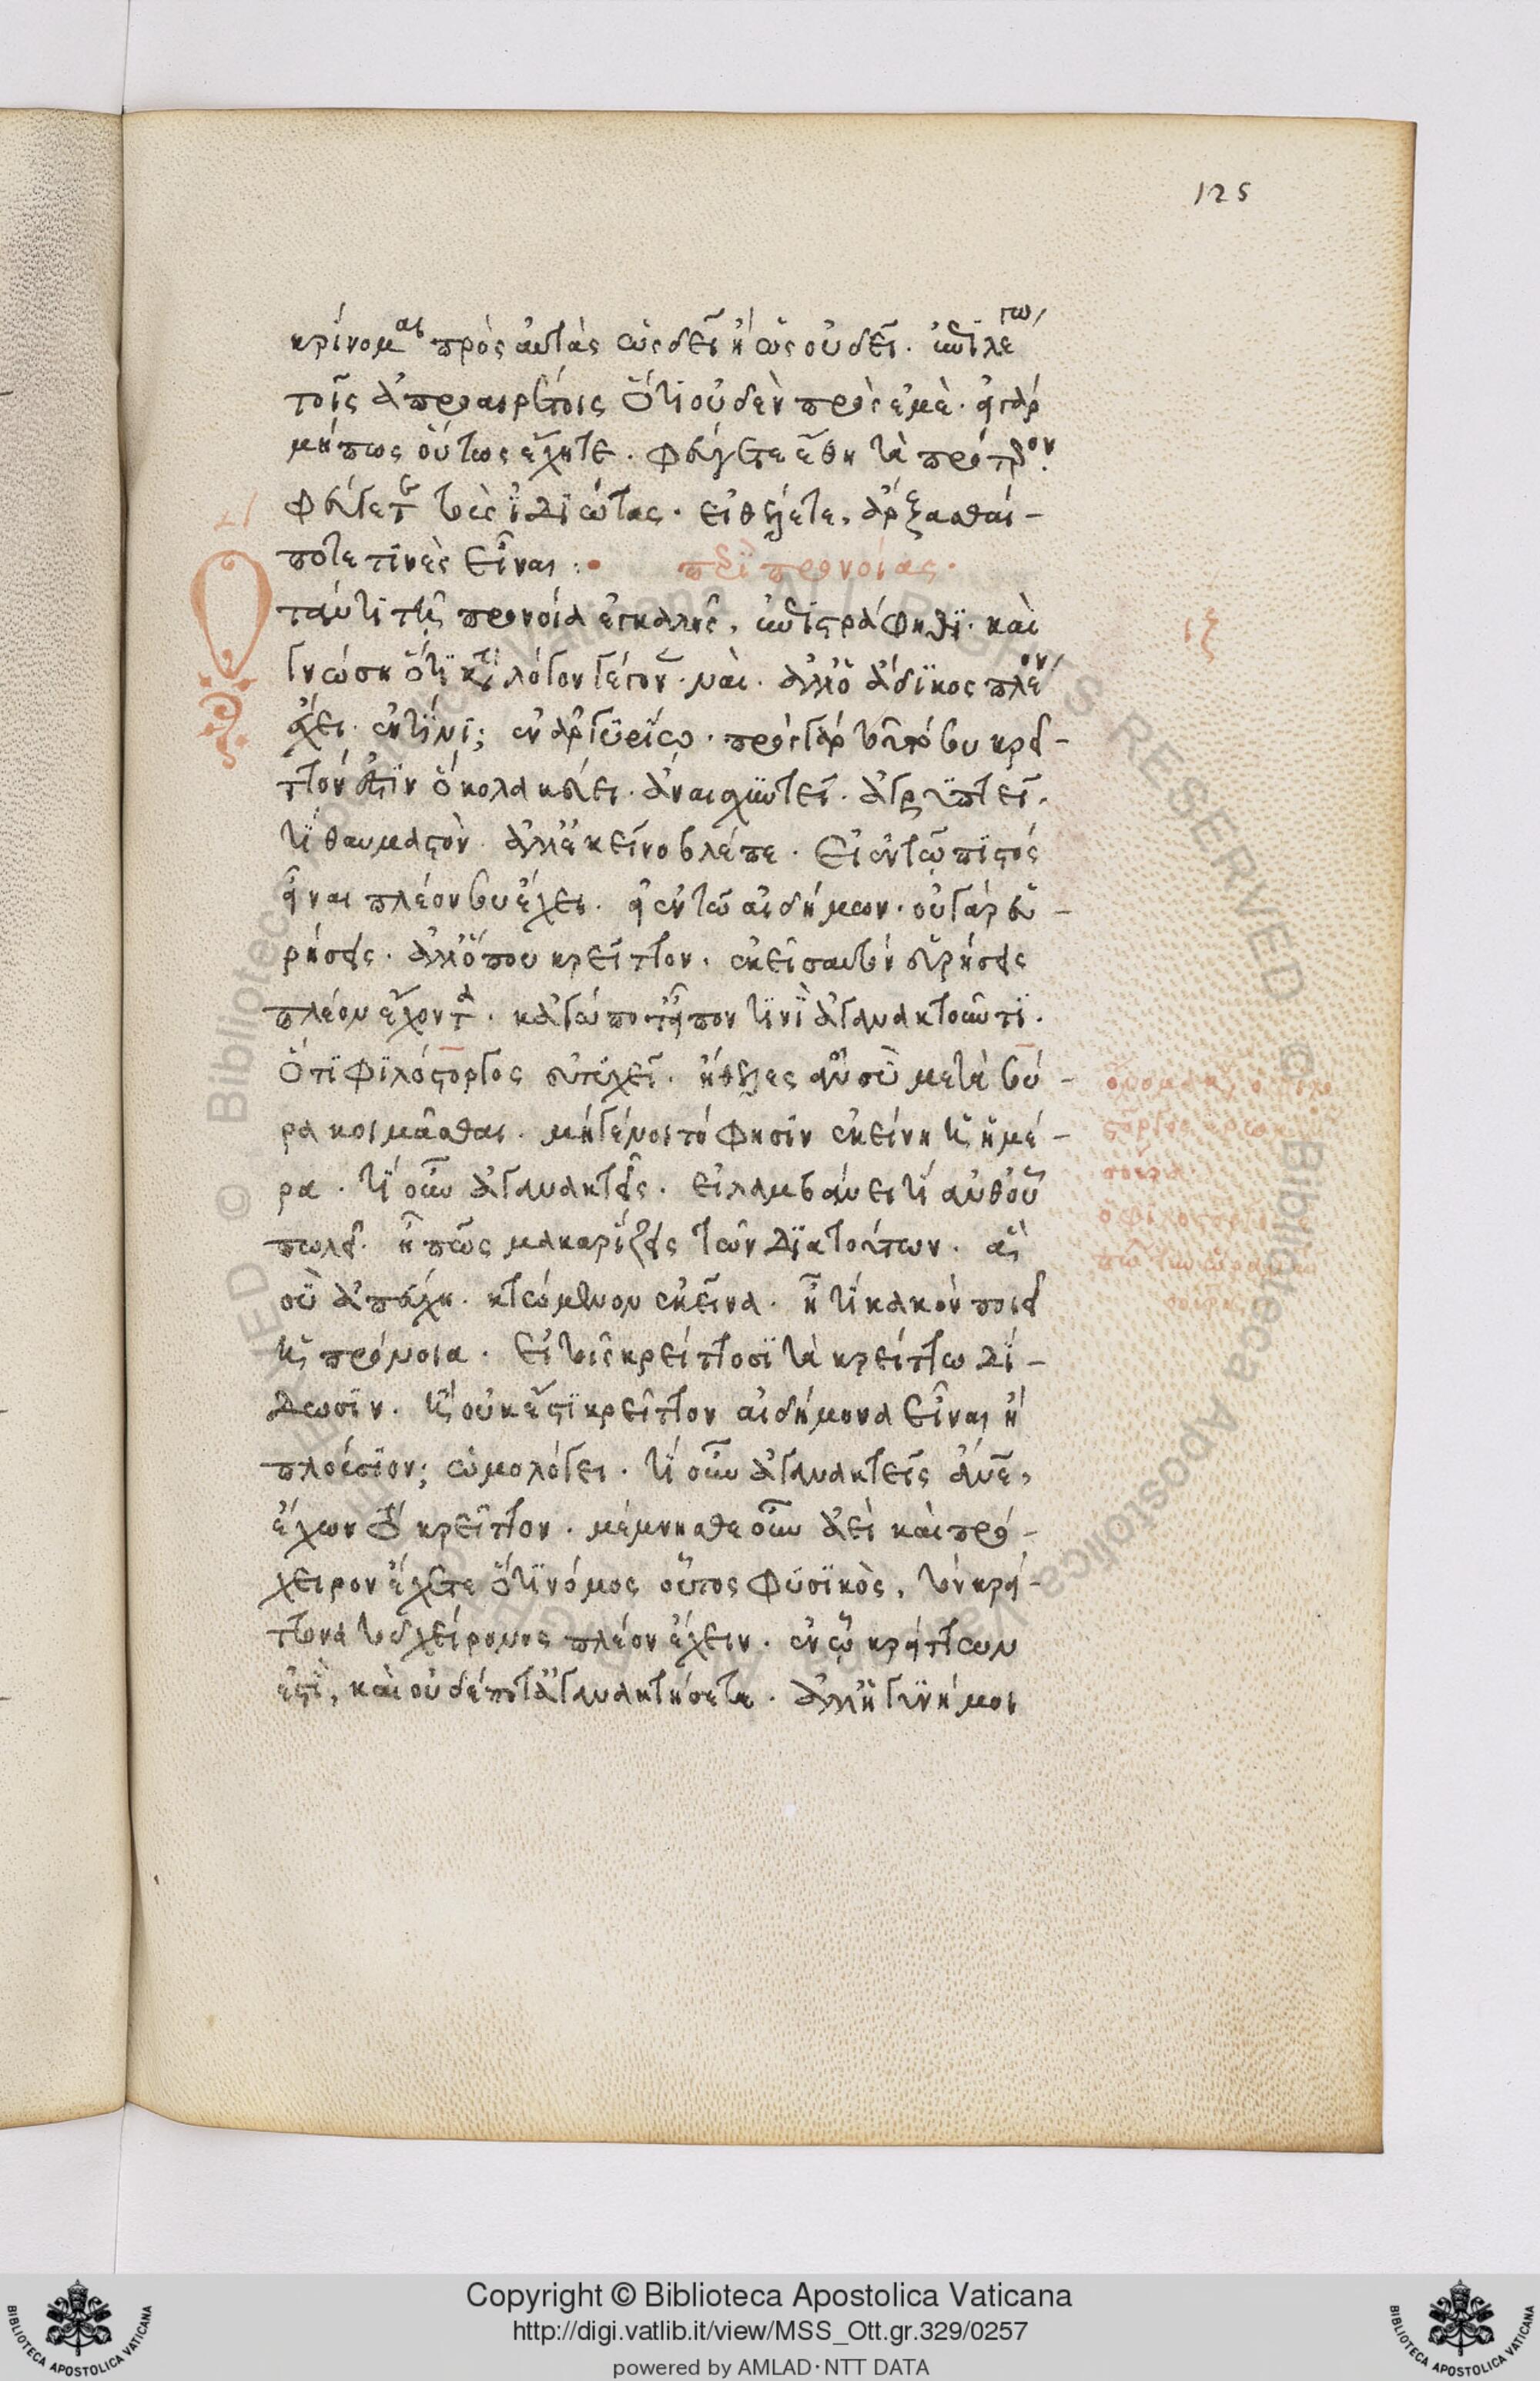 125
κρίνομαι πρὸς αὐτὰς ὡς δεῖ ἢ ὡς οὐ δεῖ. ἐπιλέγω
τοῖς ἀπροαιρέτοις ὅτι οὐδὲν πρὸς ἐμὲ. εἰ γὰρ
μήπως οὕτως ἔχητε. φεύγετε ἔθη τὰ πρότερον.
φεύγετε τοὺς ἰδιώτας. εἰ θέλετε, ἄρξασθαί-
ποτε τινὲς εἶναι :· περὶ προνοίας.
Ὅταν τι τῆ προνοία ἐγκαλῆς, ἐπιστράφηθι. καὶ ιζ
γνώση ὅτι κατὰ λόγον γέγονεν. ναὶ. ἀλλ' ὁ ἄδικος πλέον
ἔχει. ἐν τίνι; ἐν ἀργυρίῳ. πρὸς γὰρ τοῦτό σου κρεῖ-
ττόν ἐστιν ὁ κολακεύει. ἀναισχυντεῖ. ἀγρυπνεῖ.
τί θαυμαστὸν. ἀλλ' ἐκεῖνο βλέπε. εἰ ἐν τῷ πιστός
εἶναι πλέον σου ἔχει. εἰ ἐν τῶ αἰδήμων. οὐ γὰρ εὑ-
ρήσεις. ἀλλ' ὅπου κρεῖττον. ἐκεῖ σαυτὸν εὑρήσεις
πλέον ἔχοντα. κἀγώ ποτ' εἶπον τινὶ ἀγανακτοῦντι.
ὅτι φιλόστοργος εὐτυχεῖ. ἤθελες ἂν σὺ μετὰ σύ-
ρα κοιμᾶσθαι. μὴ γένοιτό φησιν ἐκείνη ἡ ἡμέ-
ρα. τί οὖν ἀγανακτεῖς. εἰ λαμβάνει τί ἀνθ' οὗ
πωλεῖ. ἢ πῶς μακαρίζεις τῶν διὰ τούτων. ἃ
σὺ ἀπεύχη. κτώμενον ἐκεῖνα. ἢ τί κακὸν ποιεῖ
ἡ πρόνοια. εἰ τοῖς κρείττοσι τὰ κρείττω δί-
δωσιν. ἢ οὐκ ἔστι κρεῖττον αἰδήμονα εἶναι ἢ
πλούσιον; ὡμολόγει. τί οὖν ἀγανακτεῖς ἄνε,
ἔχων τὸ κρεῖττον. μέμνησθε οὖν ἀεὶ καὶ πρό-
χειρον ἔχετε ὅτι νόμος οὗτος φυσικὸς, τὸν κρεί-
ττονα τοῦ χείρονος πλέον ἔχειν. ἐν ᾧ κρείττων
ἐστὶ, καὶ οὐδέποτ' ἀγανακτήσετε. ἀλλ' ἡ γυνή μοι
Copyright © Biblioteca Apostolica Vaticana
http://digi.vatlib.it/view/MSS_Ott.gr.329/0257
powered by AMLAD·NTT DATA